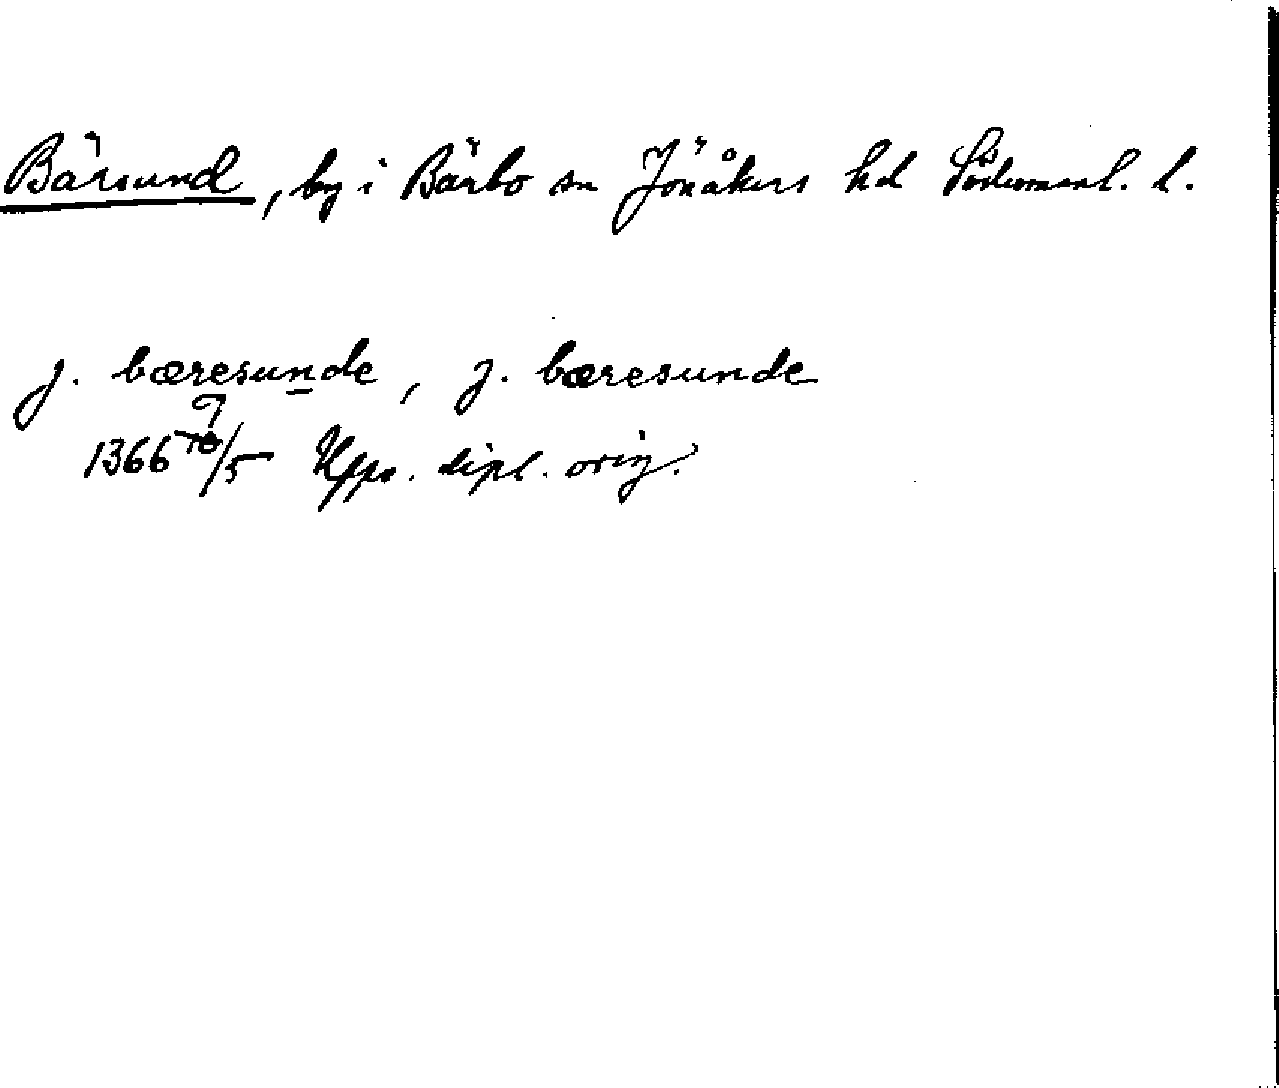 Bärsund, by i Bärbo sn Jönåkers hd Södermanl. l.
j. bæresunde, j. bæresunde
1366 9/5 Upps. dipl. orig.